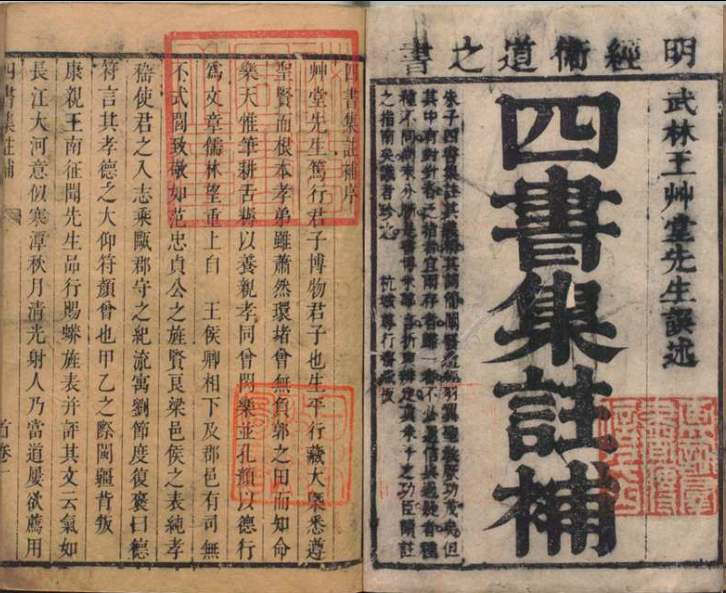 明經衛道之書
武林王艸堂先生譔述
四書集註補
朱子四書集註其義精其詞簡闡聖教厥功茂矣但
之指南矣識者珍之 杭城尊行齋藏板
四書集註補序
艸堂先生篤行君子博物君子也生平行藏大槩悉遵
聖賢而根本孝弟雖蕭然環堵曾無負郭之田而知命
樂天惟筆耕舌耨以養親孝同曾閔樂並孔顏以德行
爲文章儒林望重上自 王侯卿相下及郡邑有司無
不式閭致敬如范忠貞公之旌賢良梁邑侯之表純孝
嵇使君之入志乘甌郡守之紀流寓劉節度復褒曰德
符言其孝德之大仰符顏曾也甲乙之際閩疆背叛
康親王南征聞先生品行賜蟒旌表并評其文云氣如
長江大河意似寒潭秋月清光射人乃當道屢欲薦用
四書集註補 首卷 一